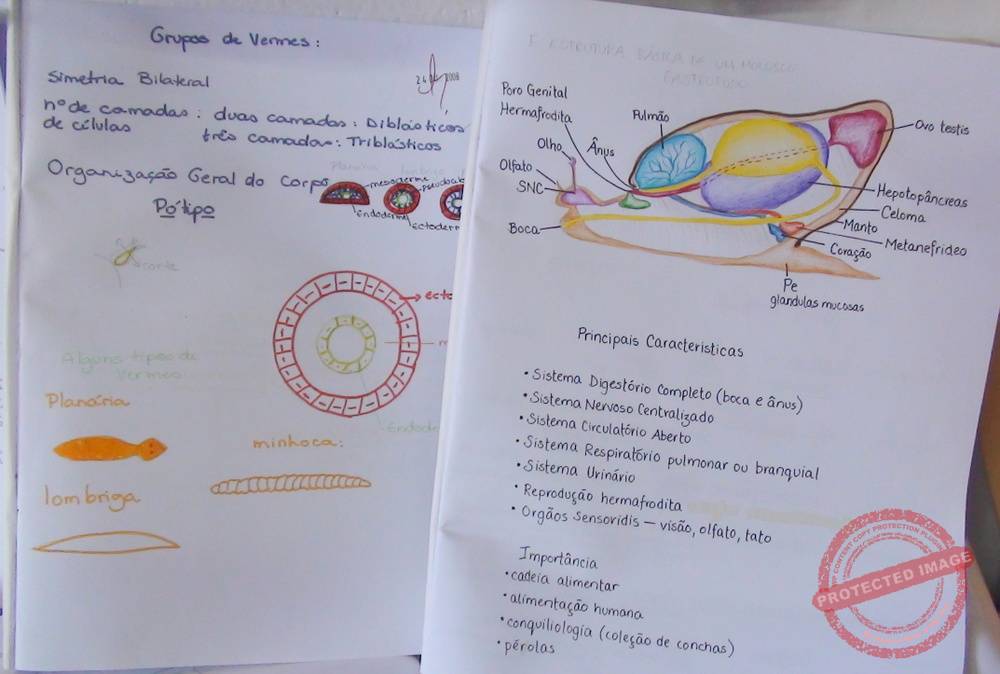 Grupos de Vermes:
Simetria Bilateral
24 2008
nº de camadas: duas camadas: Diblásticos
de células três camadas: Triblásticos
Organização Geral do Corpo
Planária
mesoderme
pseudo
Endoderme
Ectoderm
Pótipo
corte
ecto
m
Endoder
Alguns tipos de
Vermes
Planária
minhoca:
lombriga
ESTRUTURA BÁSICA DE UM MOLUSCO
GASTRÓPODO
Poro Genital
Hermafrodita
Pulmão
Ânus
Olho
Olfato
SNC
Boca
Ovo testis
Hepotopâncreas
Celoma
Manto
Metanefrideo
Coração
Pe
glandulas mucosas
Principais Caracteristicas
• Sistema Digestório Completo (boca e ânus)
• Sistema Nervoso Centralizado
• Sistema Circulatório Aberto
• Sistema Respiratório pulmonar ou branquial
• Sistema Urinário
• Reprodução hermafrodita
• Orgãos Sensoridis — visão, olfato, tato
Importância
• cadeia alimentar
• alimentação humana
• conquiliologia (coleção de conchas)
• pérolas
WP CONTENT COPY PROTECTION PLUGIN
PROTECTED IMAGE